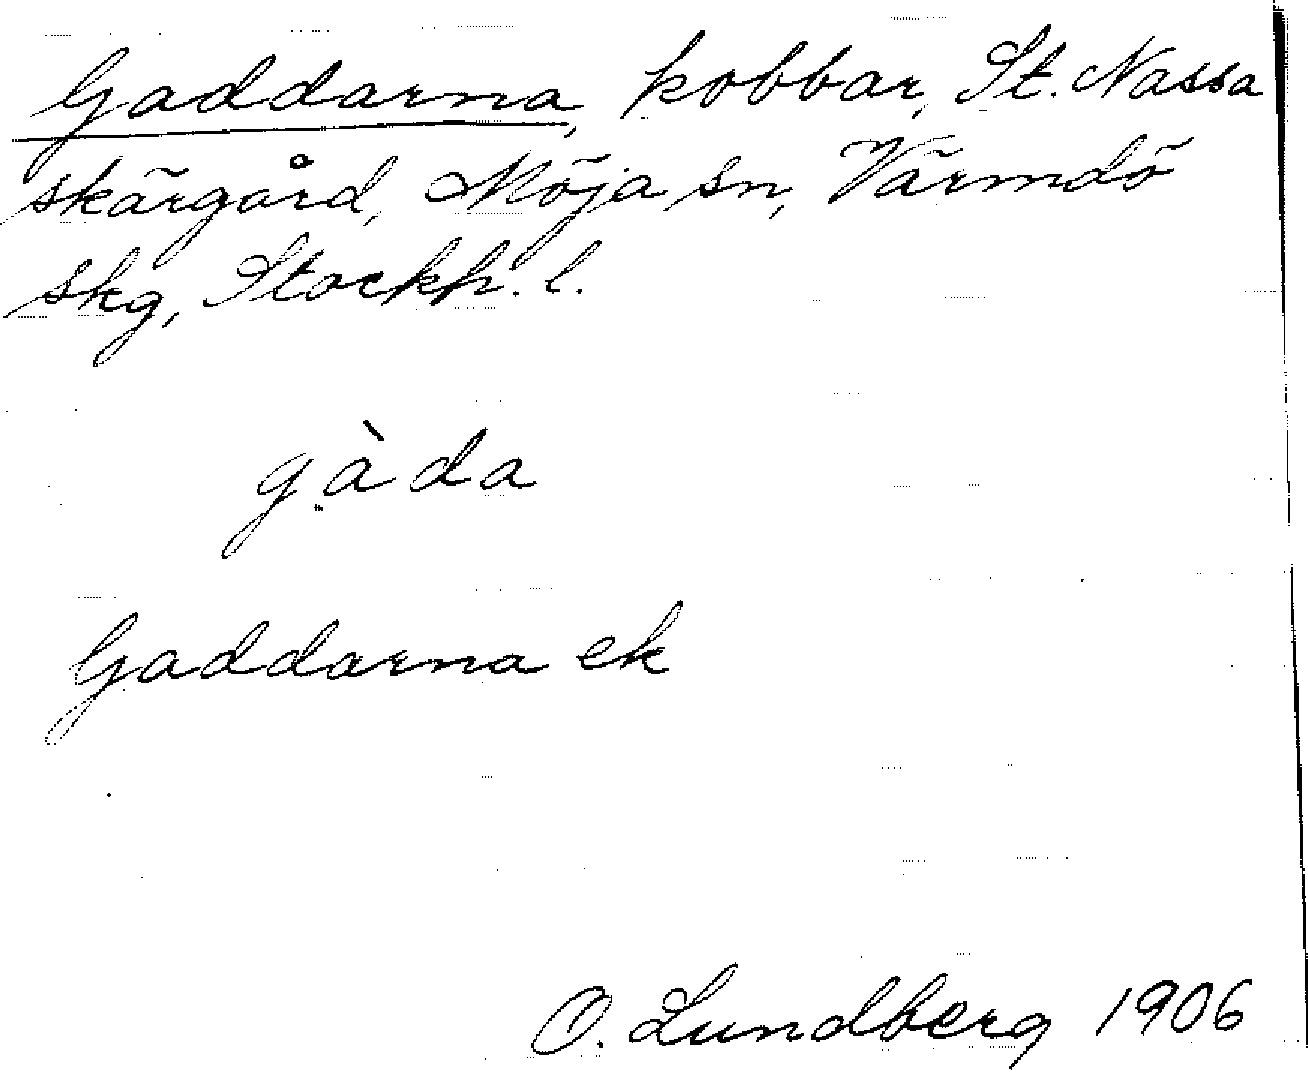 Gaddarna, kobbar, St. Nassa
skärgård, Möja sn, Värmdö
skg, Stockh. l.
gàda
Gaddarna ek
O. Lundberg 1906